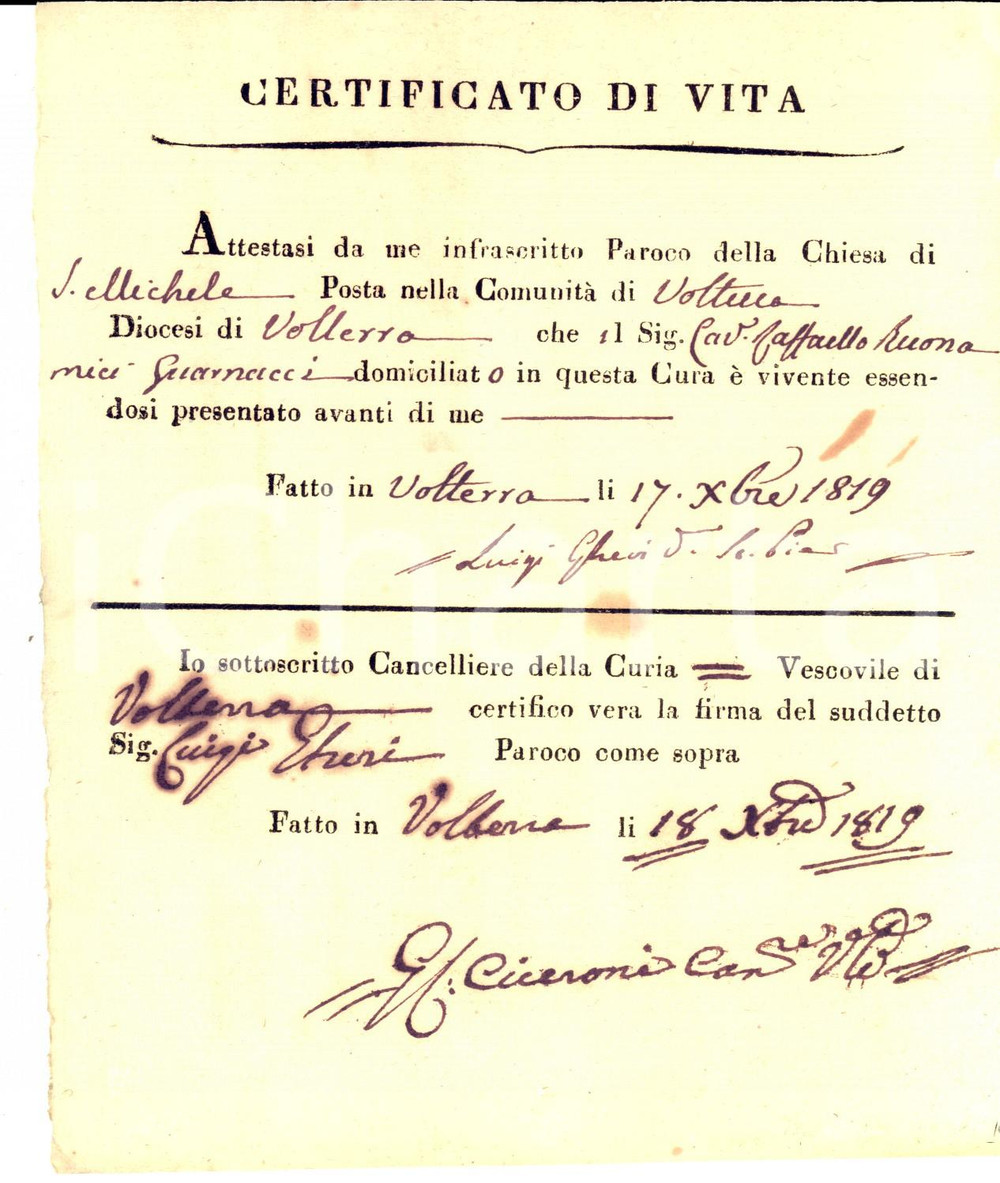 CERTIFICATO DI VITA
Attestasi da me infrascritto Paroco della Chiesa di
S. Michele Posta nella Comunità di Volterra
Diocesi di Volterra che il Sig. Cav.r Raffaello Buona
mici Guarnacci domiciliato in questa Cura è vivente essen-
dosi presentato avanti di me
Fatto in Volterra li 17. Xbre 1819
Luigi
Io sottoscritto Cancelliere della Curia Vescovile di
Volterra certifico vera la firma del suddetto
Sig. Luigi Paroco come sopra
Fatto in Volterra li 18 Xbre 1819
Ciceroni Can.re